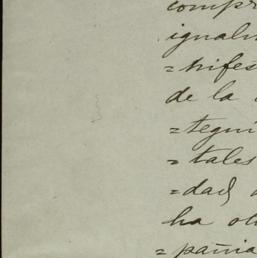 compr
igualm
=nifes
de la
=tegui
=tales
=dad,
ha ob
=pañia